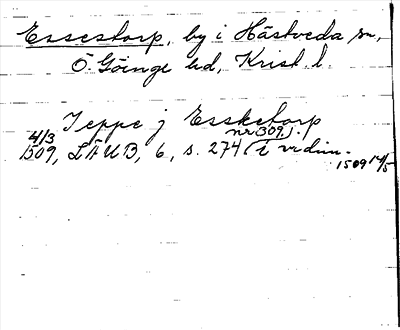 Essestorp, by i Hästveda sn,
Ö. Göinge hd, Krist. l.
Jeppe j Essketorp
4/3 1509, LÄUB, 6, s. 274 (nr 309). i vidim. 1509 14/5